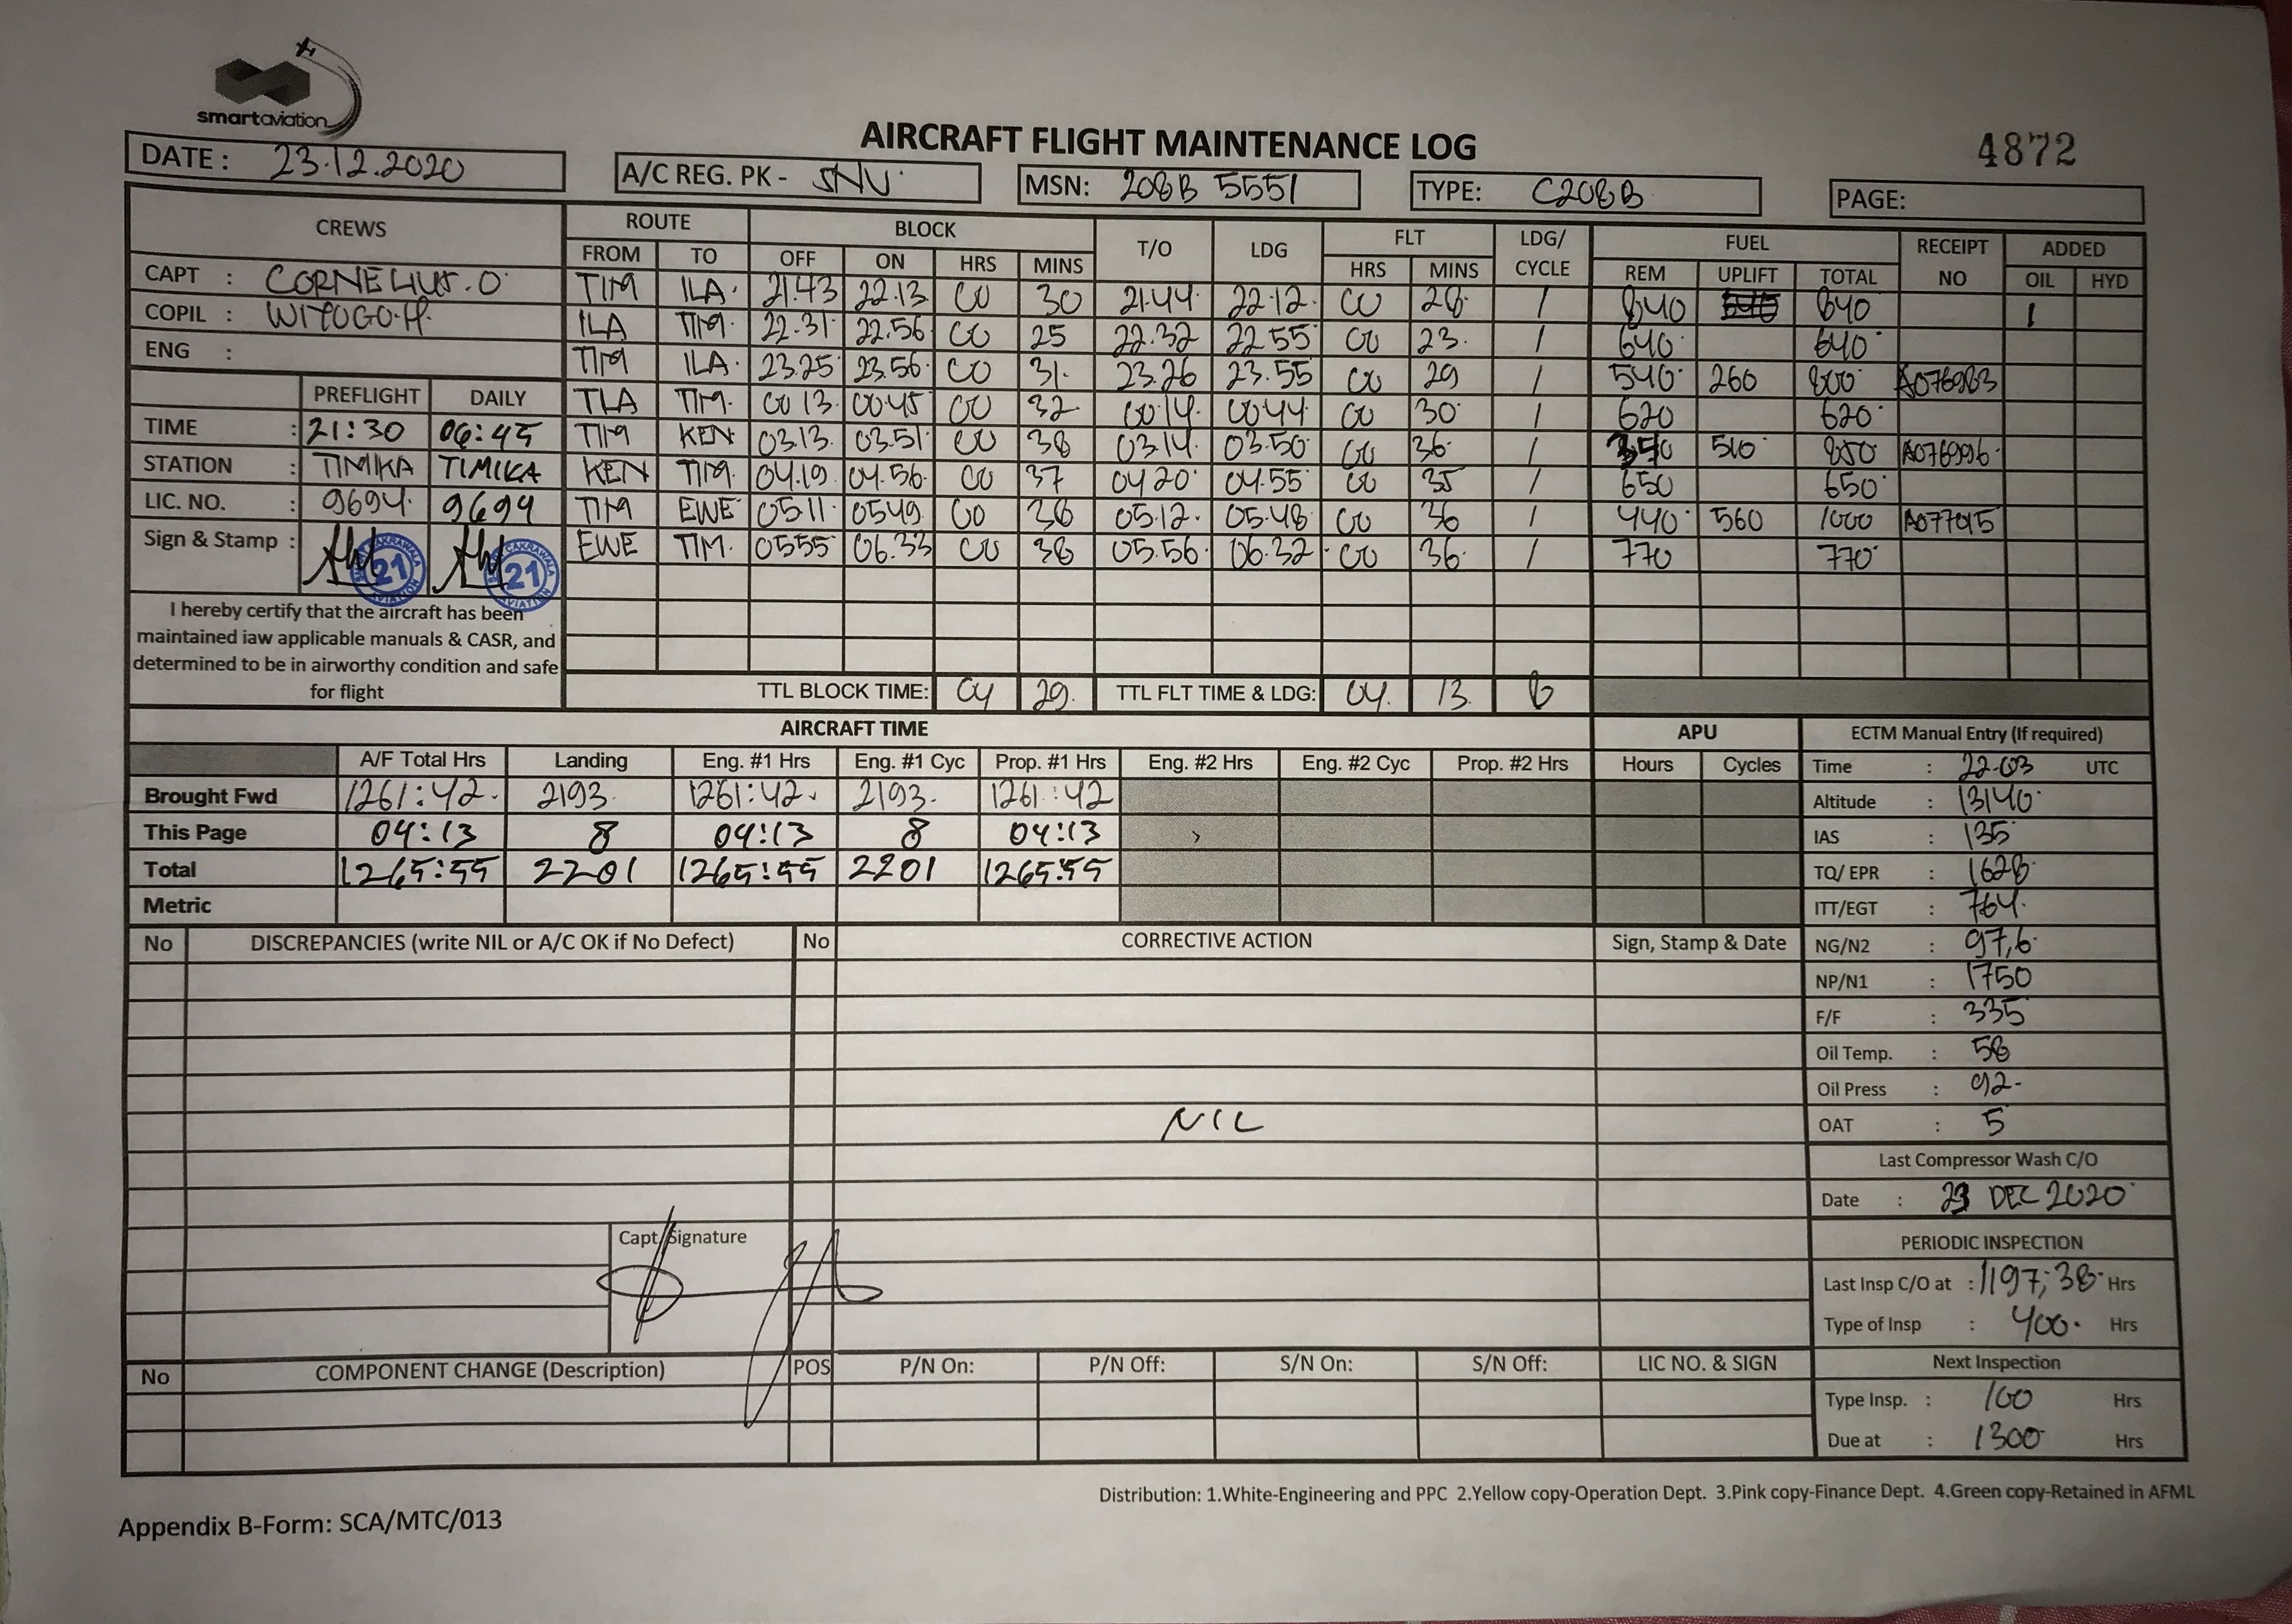 smartaviation
AIRCRAFT FLIGHT MAINTENANCE LOG
4872
DATE : 23.12.2020
A/C REG. PK - SNU
MSN: 208B 5551
TYPE: C208B
PAGE:
CREWS
ROUTE BLOCK T/O LDG FLT LDG/ CYCLE FUEL RECEIPT NO ADDED
FROM TO OFF ON HRS MINS HRS MINS REM UPLIFT TOTAL OIL HYD
CAPT : CORNELIUS.O
COPIL : WIYOGO.H
ENG :
TIM ILA 21.43 22.13 00 30 21.44 22.12 00 28 1 840 840 1
ILA TIM 22.31 22.56 00 25 22.32 22.55 00 23 1 640 640
TIM ILA 23.25 23.56 00 31 23.26 23.55 00 29 1 540 260 800 A076983
ILA TIM 00 13 00.45 00 32 00.14 00.44 00 30 1 620 620
TIM KEN 03.13 03.51 00 38 03.14 03.50 00 36 1 510 850 A076996
KEN TIM 04.19 04.56 00 37 04 20 04.55 00 35 1 650 650
TIM EWE 05.11 0549 00 38 05.12 05.48 00 36 1 440 560 1000 A077015
EWE TIM 0555 06.33 00 38 05.56 06.32 00 36 1 770 770
PREFLIGHT DAILY
TIME : 21:30 06:45
STATION : TIMIKA TIMIKA
LIC. NO. : 9694 9694
Sign & Stamp :
CAKRAWALA AVIATION 21
CAKRAWALA AVIATION 21
I hereby certify that the aircraft has been
maintained iaw applicable manuals & CASR, and
determined to be in airworthy condition and safe
for flight
TTL BLOCK TIME: 04 29 TTL FLT TIME & LDG: 04 13 8
AIRCRAFT TIME
APU
A/F Total Hrs Landing Eng. #1 Hrs Eng. #1 Cyc Prop. #1 Hrs Eng. #2 Hrs Eng. #2 Cyc Prop. #2 Hrs Hours Cycles
Brought Fwd 1261:42 2193 1261:42 2193 1261:42
This Page 04:13 8 04:13 8 04:13
Total 1265:55 2201 1265:55 2201 1265:55
Metric
ECTM Manual Entry (If required)
Time : 22.03 UTC
Altitude : 13140
IAS : 135
TQ/ EPR : 1628
ITT/EGT : 764
NG/N2 : 97,6
NP/N1 : 1750
F/F : 335
Oil Temp. : 58
Oil Press : 92
OAT : 5
Last Compressor Wash C/O
Date : 23 DEC 2020
PERIODIC INSPECTION
Last Insp C/O at : 1197;38 Hrs
Type of Insp : 400 Hrs
Next Inspection
Type Insp. : 100 Hrs
Due at : 1300 Hrs
No DISCREPANCIES (write NIL or A/C OK if No Defect) No CORRECTIVE ACTION Sign, Stamp & Date
NIL
Capt Signature
No COMPONENT CHANGE (Description) POS P/N On: P/N Off: S/N On: S/N Off: LIC NO. & SIGN
Distribution: 1.White-Engineering and PPC 2.Yellow copy-Operation Dept. 3.Pink copy-Finance Dept. 4.Green copy-Retained in AFML
Appendix B-Form: SCA/MTC/013